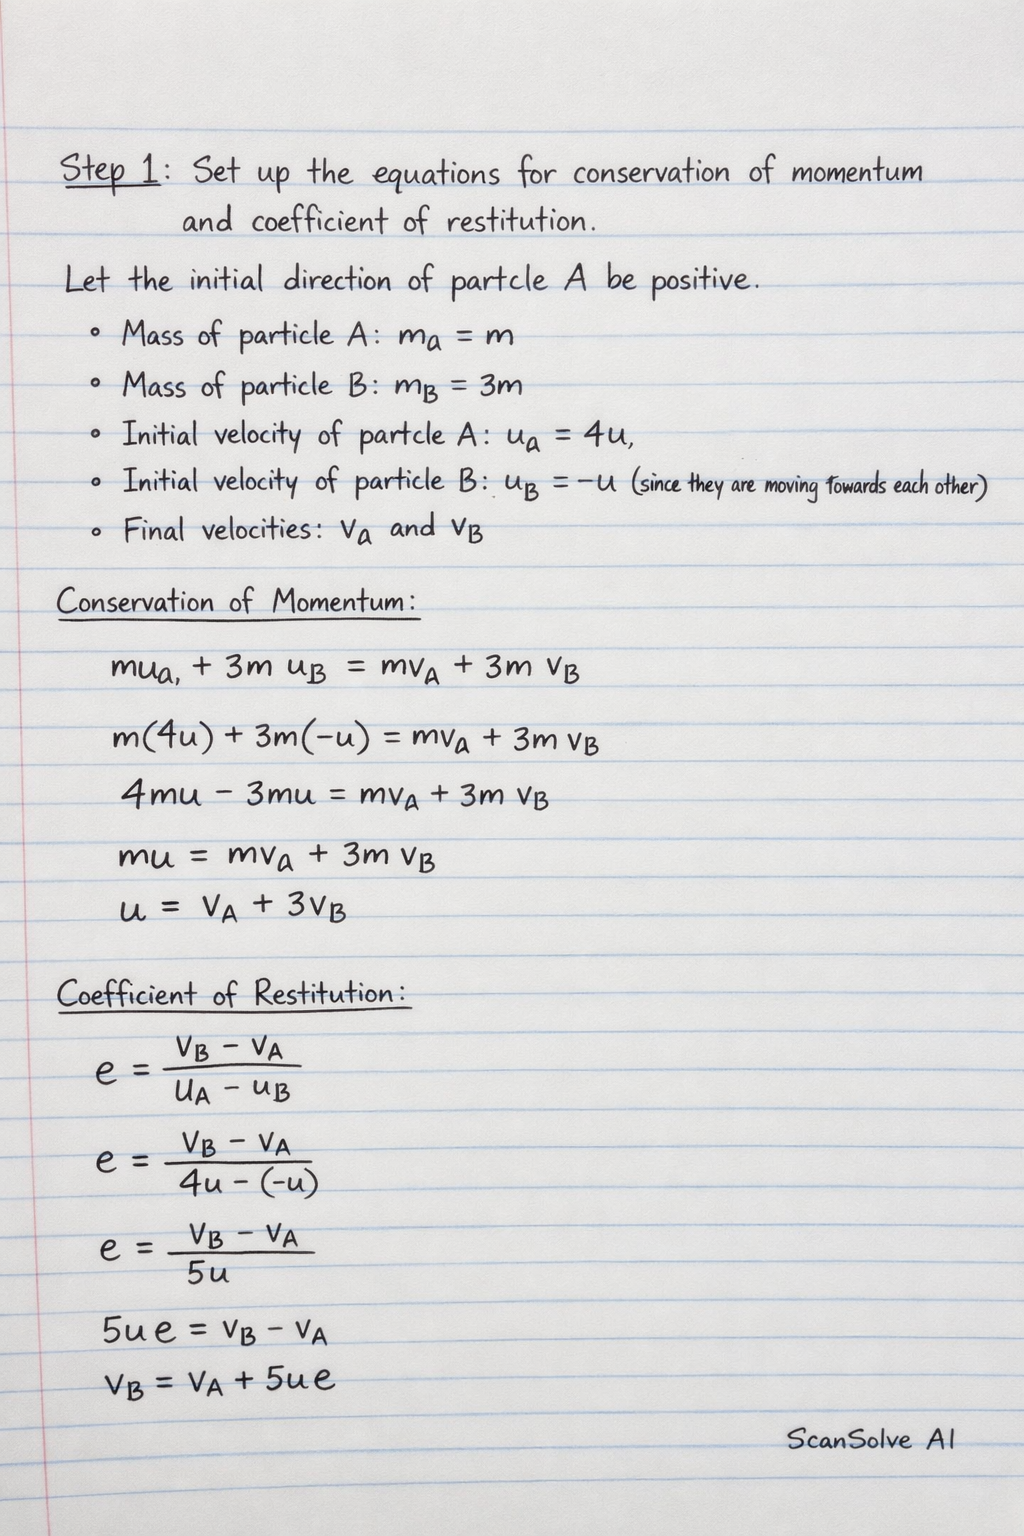 Step 1: Set up the equations for conservation of momentum
and coefficient of restitution.
Let the initial direction of partcle A be positive.
• Mass of particle A: mₐ = m
• Mass of particle B: m_B = 3m
• Initial velocity of partcle A: uₐ = 4u,
• Initial velocity of particle B: u_B = -u (since they are moving towards each other)
• Final velocities: vₐ and v_B
Conservation of Momentum:
muₐ, + 3m u_B = mv_A + 3m v_B
m(4u) + 3m(-u) = mvₐ + 3m v_B
4mu - 3mu = mv_A + 3m v_B
mu = mvₐ + 3m v_B
u = v_A + 3v_B
Coefficient of Restitution:
e = (v_B - v_A) / (u_A - u_B)
e = (v_B - v_A) / (4u - (-u))
e = (v_B - v_A) / 5u
5ue = v_B - v_A
v_B = v_A + 5ue
ScanSolve AI